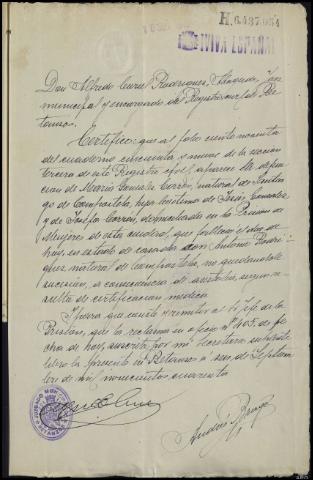 H.6.487.054
¡VIVA ESPAÑA!
Don Alfredo Curiel Rodriguez, Abogado, Juez
municipal y encargado del Registro civil de Be-
tanzos.
Certifico: que al folio ciento noventa
del cuaderno cincuenta y nueve de la seccion
tercera de este Registro civil, aparece la defun-
cion de María Gonzalez Carrón, natural de Santia-
go de Compostela, hija legitima de Jesús Gonzalez
y de Josefa Carrón, domiciliada en la Prision de
Mujeres de esta ciudad, que falleció el dia de
hoy, en estado de casada con Antonio Rodri-
guez, natural de Compostela, no quedandole
sucesión, a consecuencia de asistolia, segun re-
sulta de certificacion medica.
Y para que conste y remitir al Sr. Jefe de la
Prision, que la reclama en oficio nº 405, de fe-
cha de hoy, suscrita por mi Secretario suplente
libro la presente en Betanzos a seis de Septiem-
bre de mil novecientos cuarenta